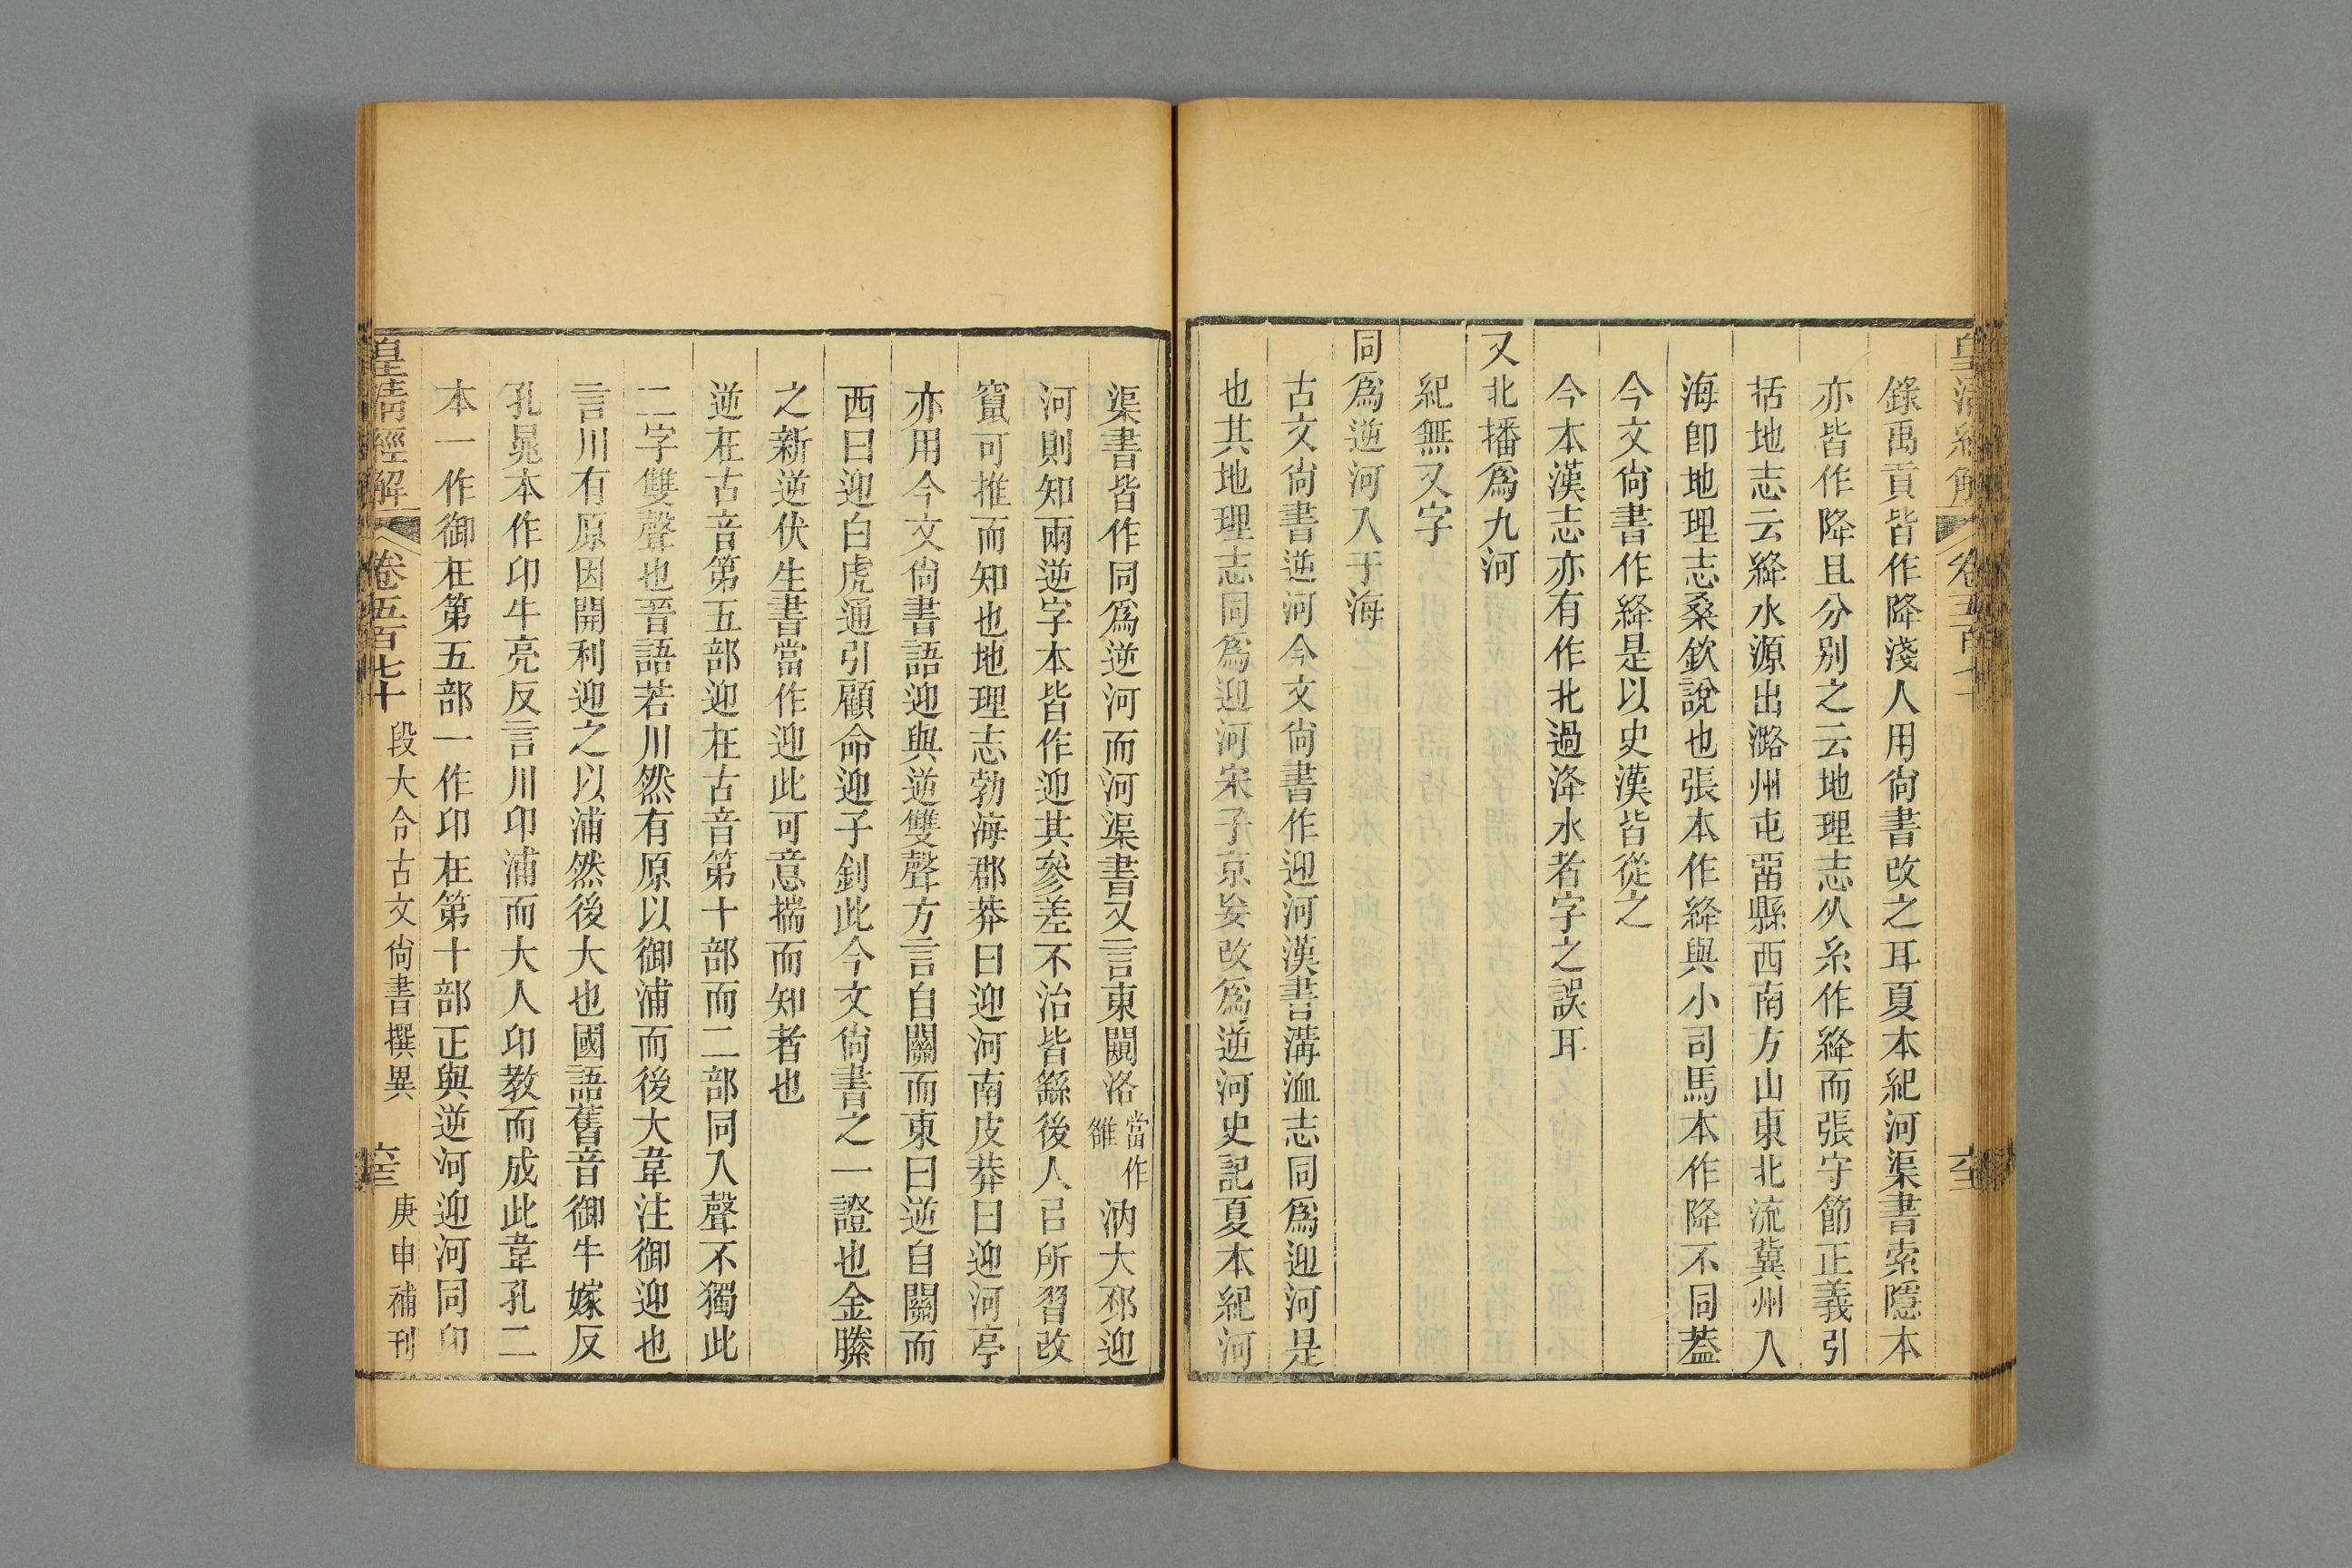 錄禹貢皆作降淺人用尙書改之耳夏本紀河渠書索隱本
亦皆作降且分别之云地理志从糸作絳而張守節正義引
括地志云絳水源出潞州屯畱縣西南方山東北流冀州入
海卽地理志桑欽說也張本作絳與小司馬本作降不同葢
今文尙書作絳是以史漢皆從之
今本漢志亦有作北過洚水者字之誤耳
又北播爲九河
紀無又字
同爲逆河入于海
古文尙書逆河今文尙書作迎河漢書溝洫志同爲迎河是
也其地理志同爲迎河宋子京妄改爲逆河史記夏本紀河
渠書皆作同爲逆河而河渠書又言東闚洛當作雒汭大邳迎
河則知兩逆字本皆作迎其參差不治皆繇後人㠯所習改
竄可推而知也地理志勃海郡莽曰迎河南皮莽曰迎河亭
亦用今文尙書語迎與逆雙聲方言自關而東曰逆自關而
西曰迎白虎通引顧命迎子釗此今文尙書之一證也金縢
之新逆伏生書當作迎此可意揣而知者也
逆在古音第五部迎在古音第十部而二部同入聲不獨此
二字雙聲也晉語若川然有原以御浦而後大韋注御迎也
言川有原因開利迎之以浦然後大也國語舊音御牛嫁反
孔晁本作卬牛亮反言川卬浦而大人卬教而成此韋孔二
本一作御在第五部一作卬在第十部正與逆河迎河同卬
皇清經解 卷五百七十 段大令古文尙書撰異 庚申補刊